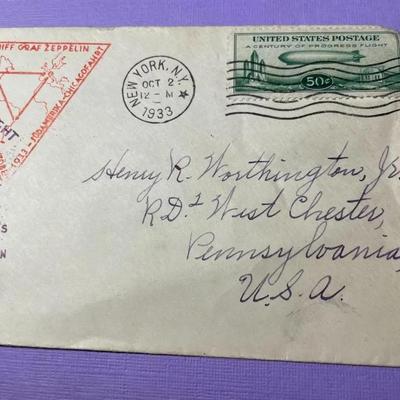 IFF GRAF ZEPPELIN
1933 - SÜDAMERIKA - CHICAGOFAHRT
GHT
S
N
NEW YORK, N.Y.
OCT 2
12 - M
1933
UNITED STATES POSTAGE
A CENTURY OF PROGRESS FLIGHT
50¢
Henry R. Worthington, Jr.
R.D. 2 West Chester,
Pennsylvania
U.S.A.